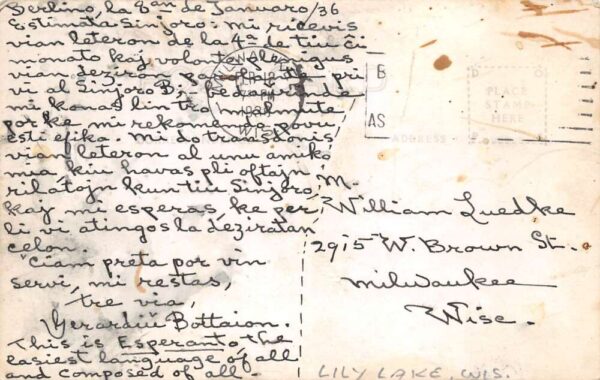 Berlino, la 8an de Januaro/36
Estimata Sinjoro: Mi ricevis
vian leteron de la 4a de tiu ĉi
monato kaj volonte plenigus
vian deziron
pri
vi al Sinjoro B;
mi konas lin tro malmulte
por ke mi rekomendo povu
esti efika. Mi do transdonis
vian leteron al unu amiko
mia kiu havas pli oftajn
rilatojn kun tiu Sinjoro,
kaj mi esperas, ke per
li vi atingos la deziratan
celon.
Ĉiam preta por vin
servi, mi restas,
tre via,
Gerardiu Bottaion.
This is Esperanto the
easiest language of all
and composed of all.
WIS.
B
AS
PLACE
STAMP
HERE
ADDRESS
M.
William Luedke
2915 W. Brown St.
Milwaukee
Wisc.
LILY LAKE, WIS.